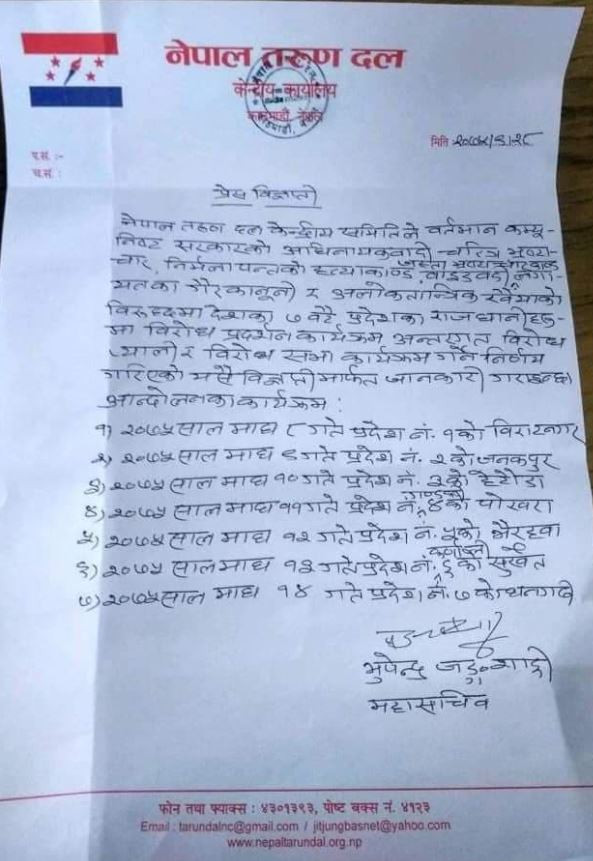 नेपाल तरुण दल
केन्द्रीय कार्यालय
काठमाडौं, नेपाल
मिति २०७५/९/२८
प.सं. :-
च.सं. :
प्रेस विज्ञप्ती
नेपाल तरुण दल केन्द्रीय समितिले वर्तमान कम्यू-
निष्ट सरकारको अधिनायकवादी चरित्र, भ्रष्टा-
चार, निर्मला पन्तको हत्याकाण्ड, वाइडबडी लगा-
यतका गैरकानूनी र अलोकतान्त्रिक रवैयाको
विरुद्धमा देशका ७ वटै प्रदेशका राजधानीहरु-
मा विरोध प्रदर्शन कार्यक्रम अन्तरगत विरोध
र्‍याली र विरोध सभा कार्यक्रम गर्ने निर्णय
गरिएको यसै विज्ञप्ती मार्फत जानकारी गराउन्छ।
आन्दोलनका कार्यक्रम :
१) २०७५ साल माघ ८ गते प्रदेश नं. १ को विराटनगर
२) २०७५ साल माघ ९ गते प्रदेश नं. २ को जनकपुर
३) २०७५ साल माघ १० गते प्रदेश नं. ३ को हेटौडा
४) २०७५ साल माघ ११ गते प्रदेश नं. गण्डकी ४ को पोखरा
५) २०७५ साल माघ १२ गते प्रदेश नं. ५ को भैरहवा
६) २०७५ साल माघ १३ गते प्रदेश नं. कर्णाली ६ को सुर्खेत
७) २०७५ साल माघ १४ गते प्रदेश नं. ७ को धनगढी
भुपेन्द्र जङ्ग शाही
महासचिव
फोन तथा फ्याक्स : ४३०१३९३, पोष्ट बक्स नं. ४१२३
Email : tarundalnc@gmail.com / jitjungbasnet@yahoo.com
www.nepaltarundal.org.np